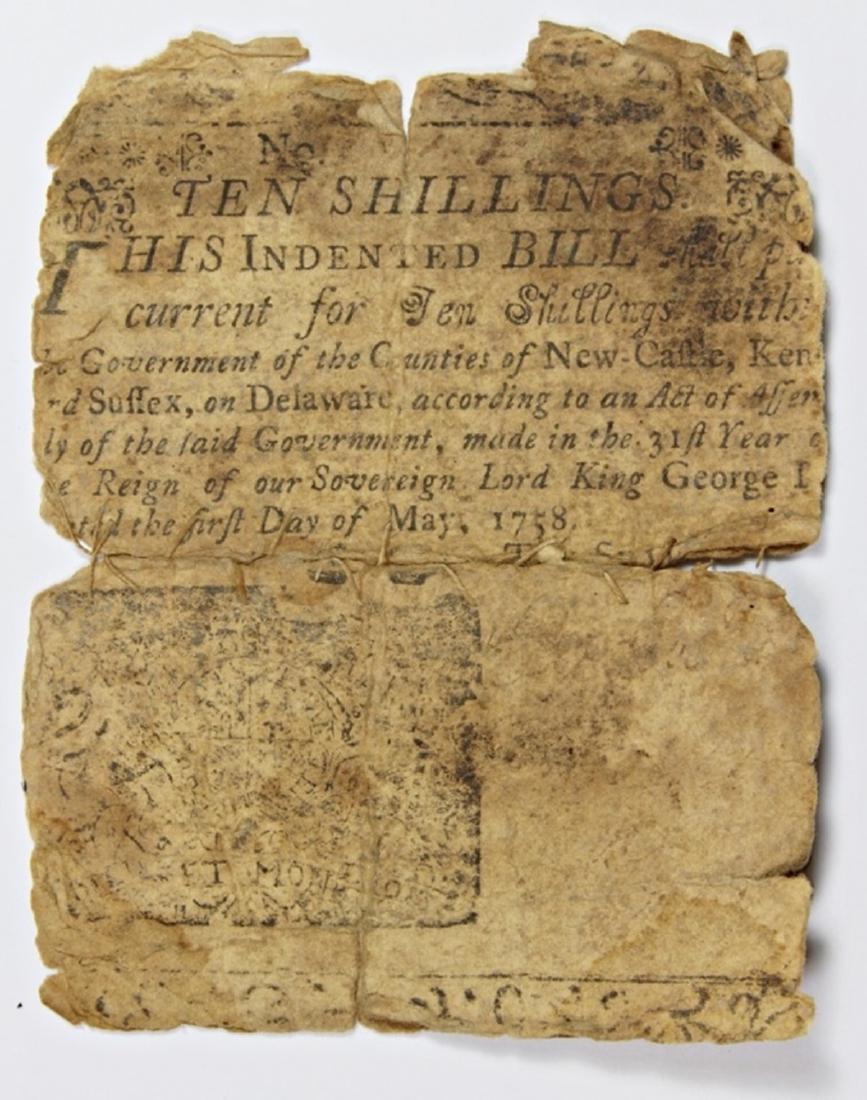 No.
TEN SHILLINGS.
THIS INDENTED BILL shall pa
current for Ten Shillings with
he Government of the Counties of New-Caſtle, Ken
nd Suſſex, on Delaware, according to an Act of Aſſem
ly of the ſaid Government, made in the 31ſt Year o
e Reign of our Sovereign Lord King George I
ated the firſt Day of May, 1758.
ET MON